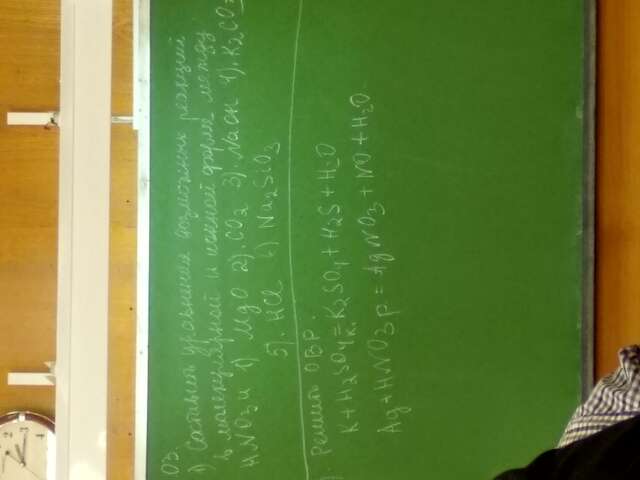 ДЗ.
1) Составить уравнения возможных реакций
в молекулярной и ионной форме между
HNO3 и 1) MgO 2). CO2 3) NaOH 4). K2CO3
5). HCl 6) Na2SiO3
Решить ОВР.
K + H2SO4к. = K2SO4 + H2S + H2O
Ag + HNO3 р = AgNO3 + NO + H2O